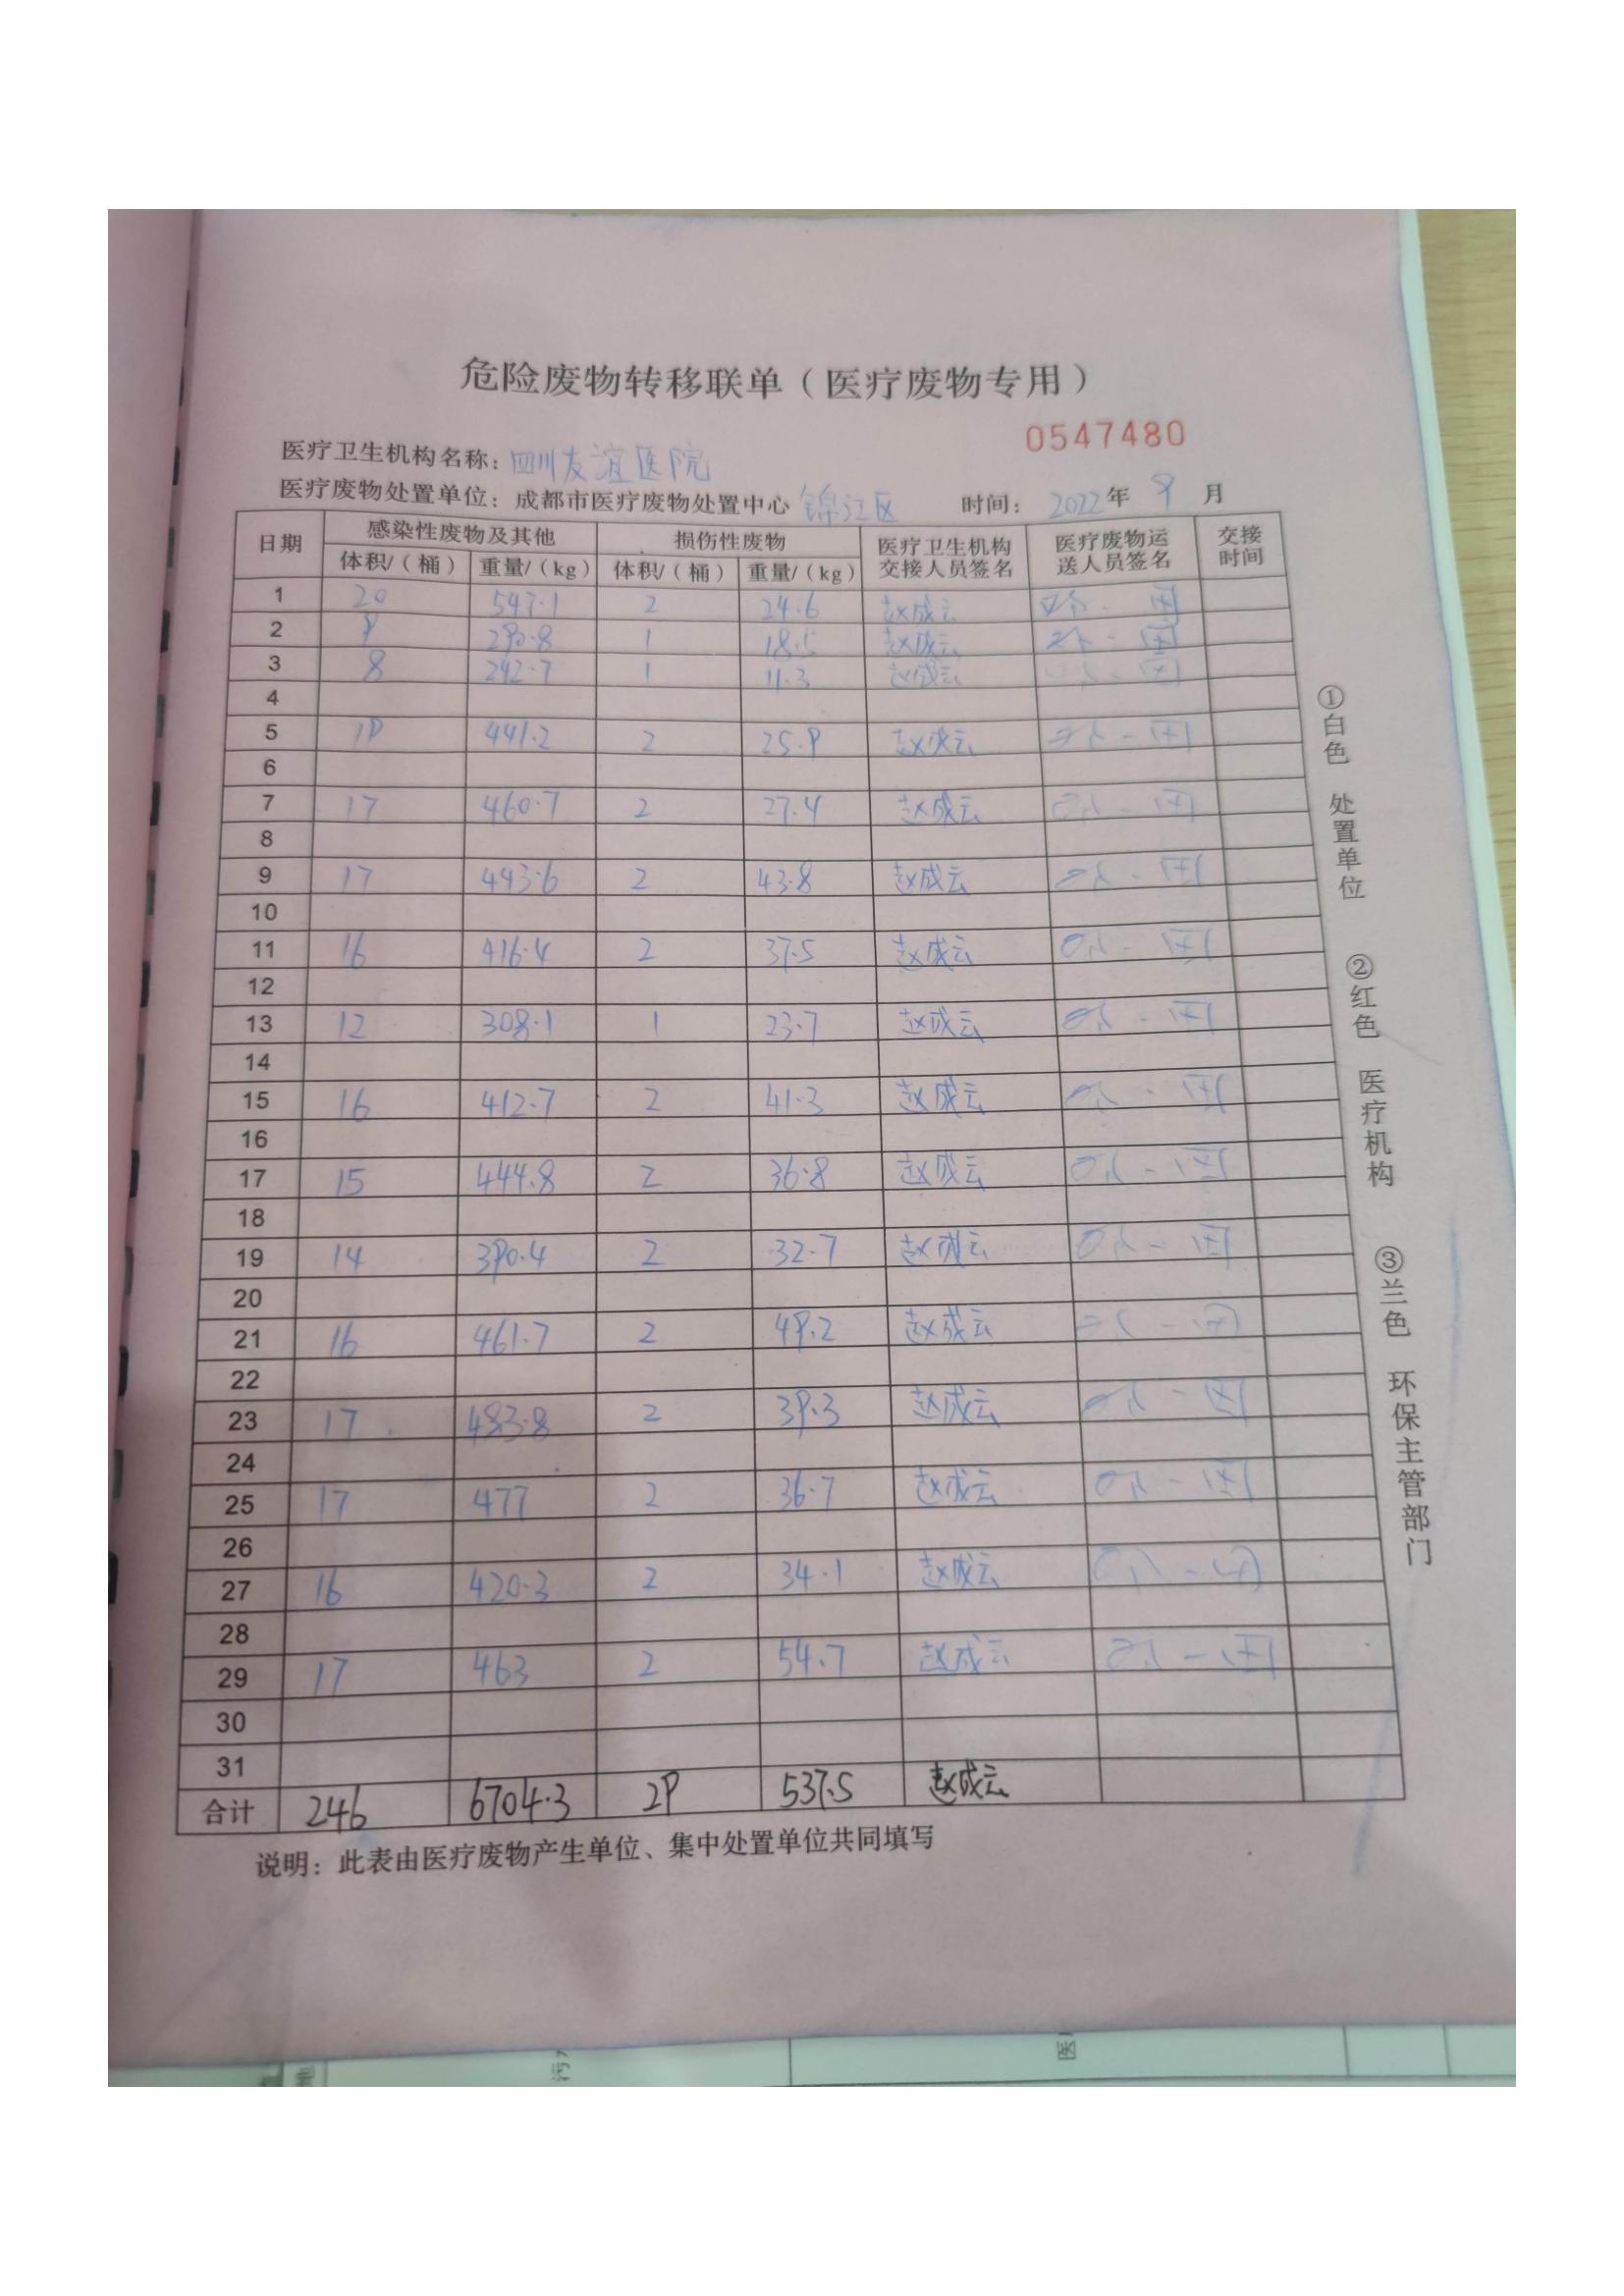 危险废物转移联单（医疗废物专用）
0547480
医疗卫生机构名称：四川友谊医院
医疗废物处置单位：成都市医疗废物处置中心 锦江区 时间：2022年 9 月
日期 感染性废物及其他 损伤性废物 医疗卫生机构交接人员签名 医疗废物运送人员签名 交接时间
体积/（桶） 重量/（kg） 体积/（桶） 重量/（kg）
1 20 547.1 2 24.6 赵成云
2 9 290.8 1 18.5 赵成云
3 8 242.7 1 11.3 赵成云
4
5 19 441.2 2 25.9 赵成云
6
7 17 460.7 2 27.4 赵成云
8
9 17 443.6 2 43.8 赵成云
10
11 16 416.4 2 37.5 赵成云
12
13 12 308.1 1 23.7 赵成云
14
15 16 412.7 2 41.3 赵成云
16
17 15 444.8 2 36.8 赵成云
18
19 14 390.4 2 32.7 赵成云
20
21 16 461.7 2 49.2 赵成云
22
23 17 483.8 2 39.3 赵成云
24
25 17 477 2 36.7 赵成云
26
27 16 420.3 2 34.1 赵成云
28
29 17 463 2 54.7 赵成云
30
31
合计 246 6704.3 29 537.5 赵成云
说明：此表由医疗废物产生单位、集中处置单位共同填写
①白色 处置单位 ②红色 医疗机构 ③兰色 环保主管部门